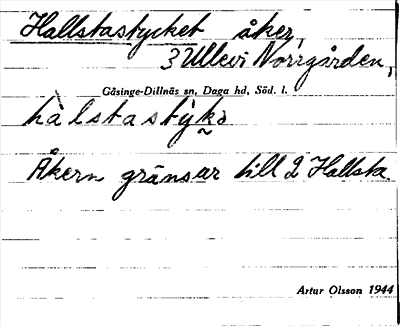 Hallstastycket åker,
3 Ullevi Norrgården,
Gåsinge-Dillnäs sn, Daga hd, Söd. l.
hàlstastỳkə
Åkern gränsar till 2 Hallsta
Artur Olsson 1944